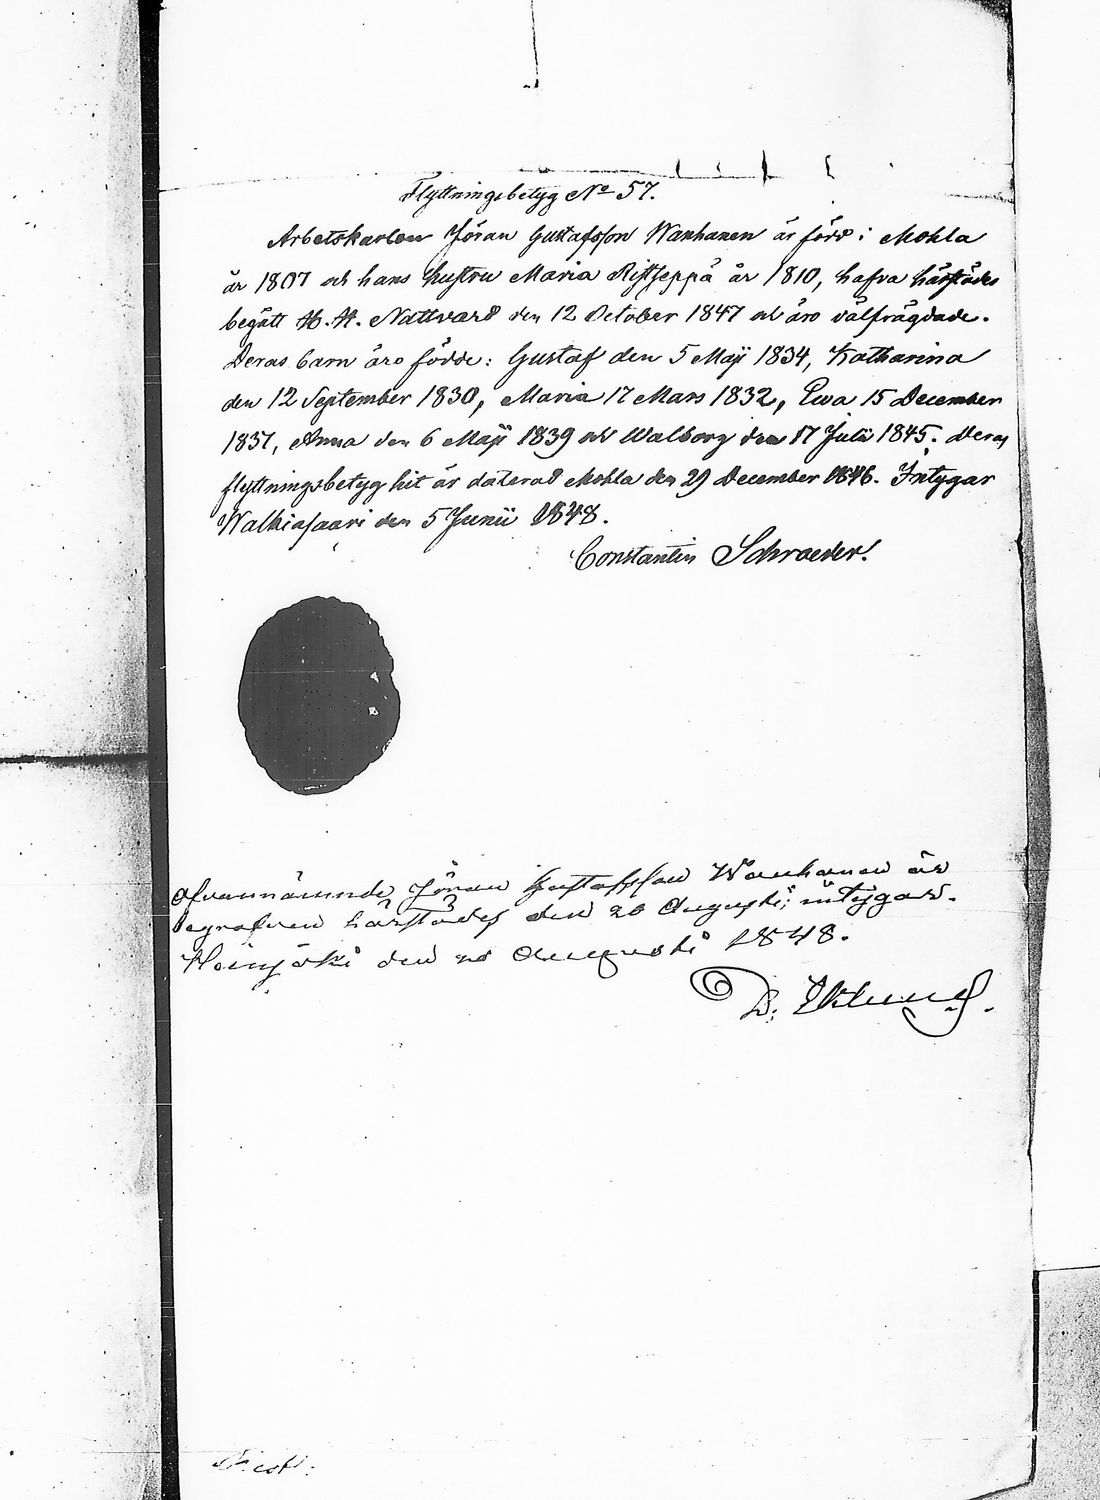 Flyttningsbetyg No 57.
Arbetskarlen Jöran Gustafsson Wanhanen är född i Mohla
år 1807 och hans hustru Maria Ristseppä år 1810, hafva härstädes
begått H. H. Nattvard den 12 October 1847 och äro välfrägdade.
Deras barn äro födde: Gustaf den 5 Maji 1834, Katharina
den 12 September 1830, Maria 17 Mars 1832, Ewa 15 December
1837, Anna den 6 Maji 1839 och Walborg den 17 Julii 1845. Deras
flyttningsbetyg hit är daterad Mohla den 29 December 1846. Intygar
Walkiasaari den 5 Junii 1848.
Constantin Schroeder.
Ofvannämnde Jöran Gustafsson Wanhanen är
begrafven härstädes den 20 Augusti; intygar.
Heinjoki den 20 Augusti 1848.